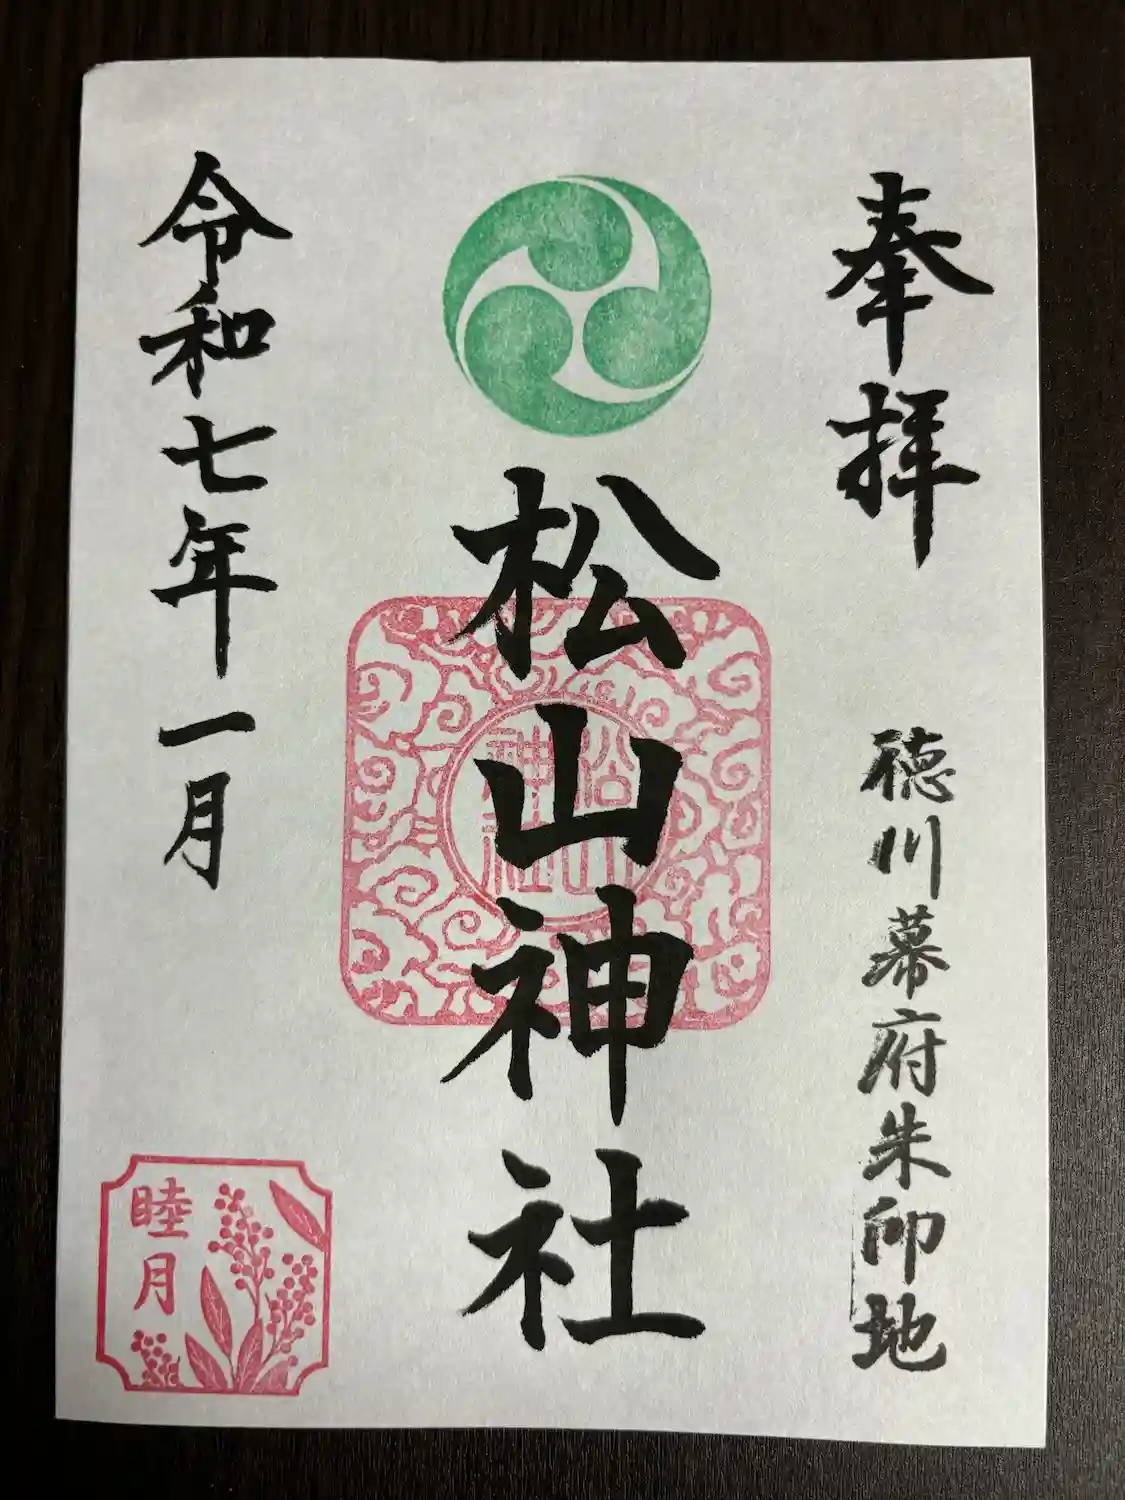 奉拝
徳川幕府朱印地
松山神社
松山
神社
令和七年一月
睦月